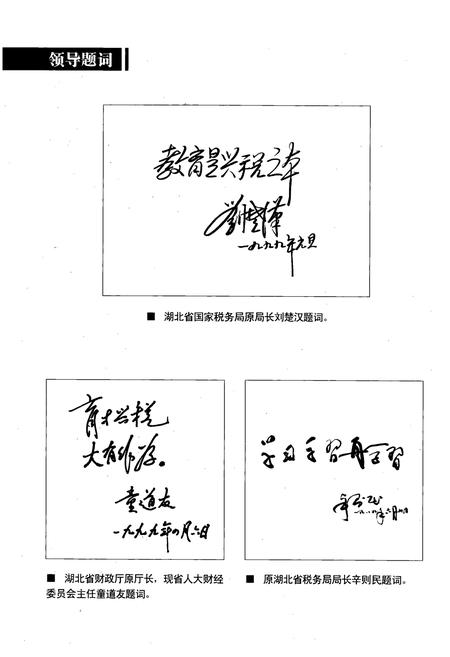 领导题词
教育是兴税之本
刘楚汉
一九九九年元旦
■ 湖北省国家税务局原局长刘楚汉题词。
育才兴税
大有作为。
童道友
一九九九年四月六日
■ 湖北省财政厅原厅长，现省人大财经
委员会主任童道友题词。
学习
再学习
■ 原湖北省税务局局长辛则民题词。